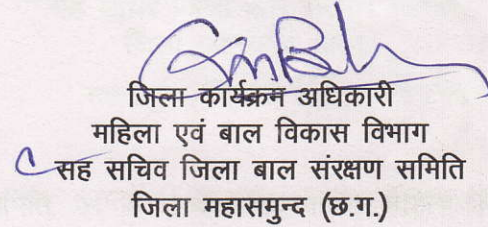 जिला कार्यक्रम अधिकारी
महिला एवं बाल विकास विभाग
सह सचिव जिला बाल संरक्षण समिति
जिला महासमुन्द (छ.ग.)